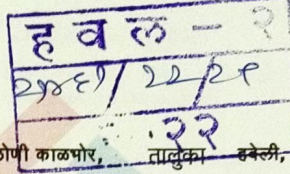 हवल - २
२५४६१/२२/२९
२२
लोणी काळभोर, तालुका हवेली,